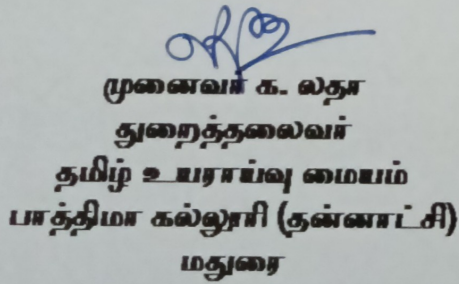 முனைவர் க. லதா
துறைத்தலைவர்
தமிழ் உயராய்வு மையம்
பாத்திமா கல்லூரி (தன்னாட்சி)
மதுரை